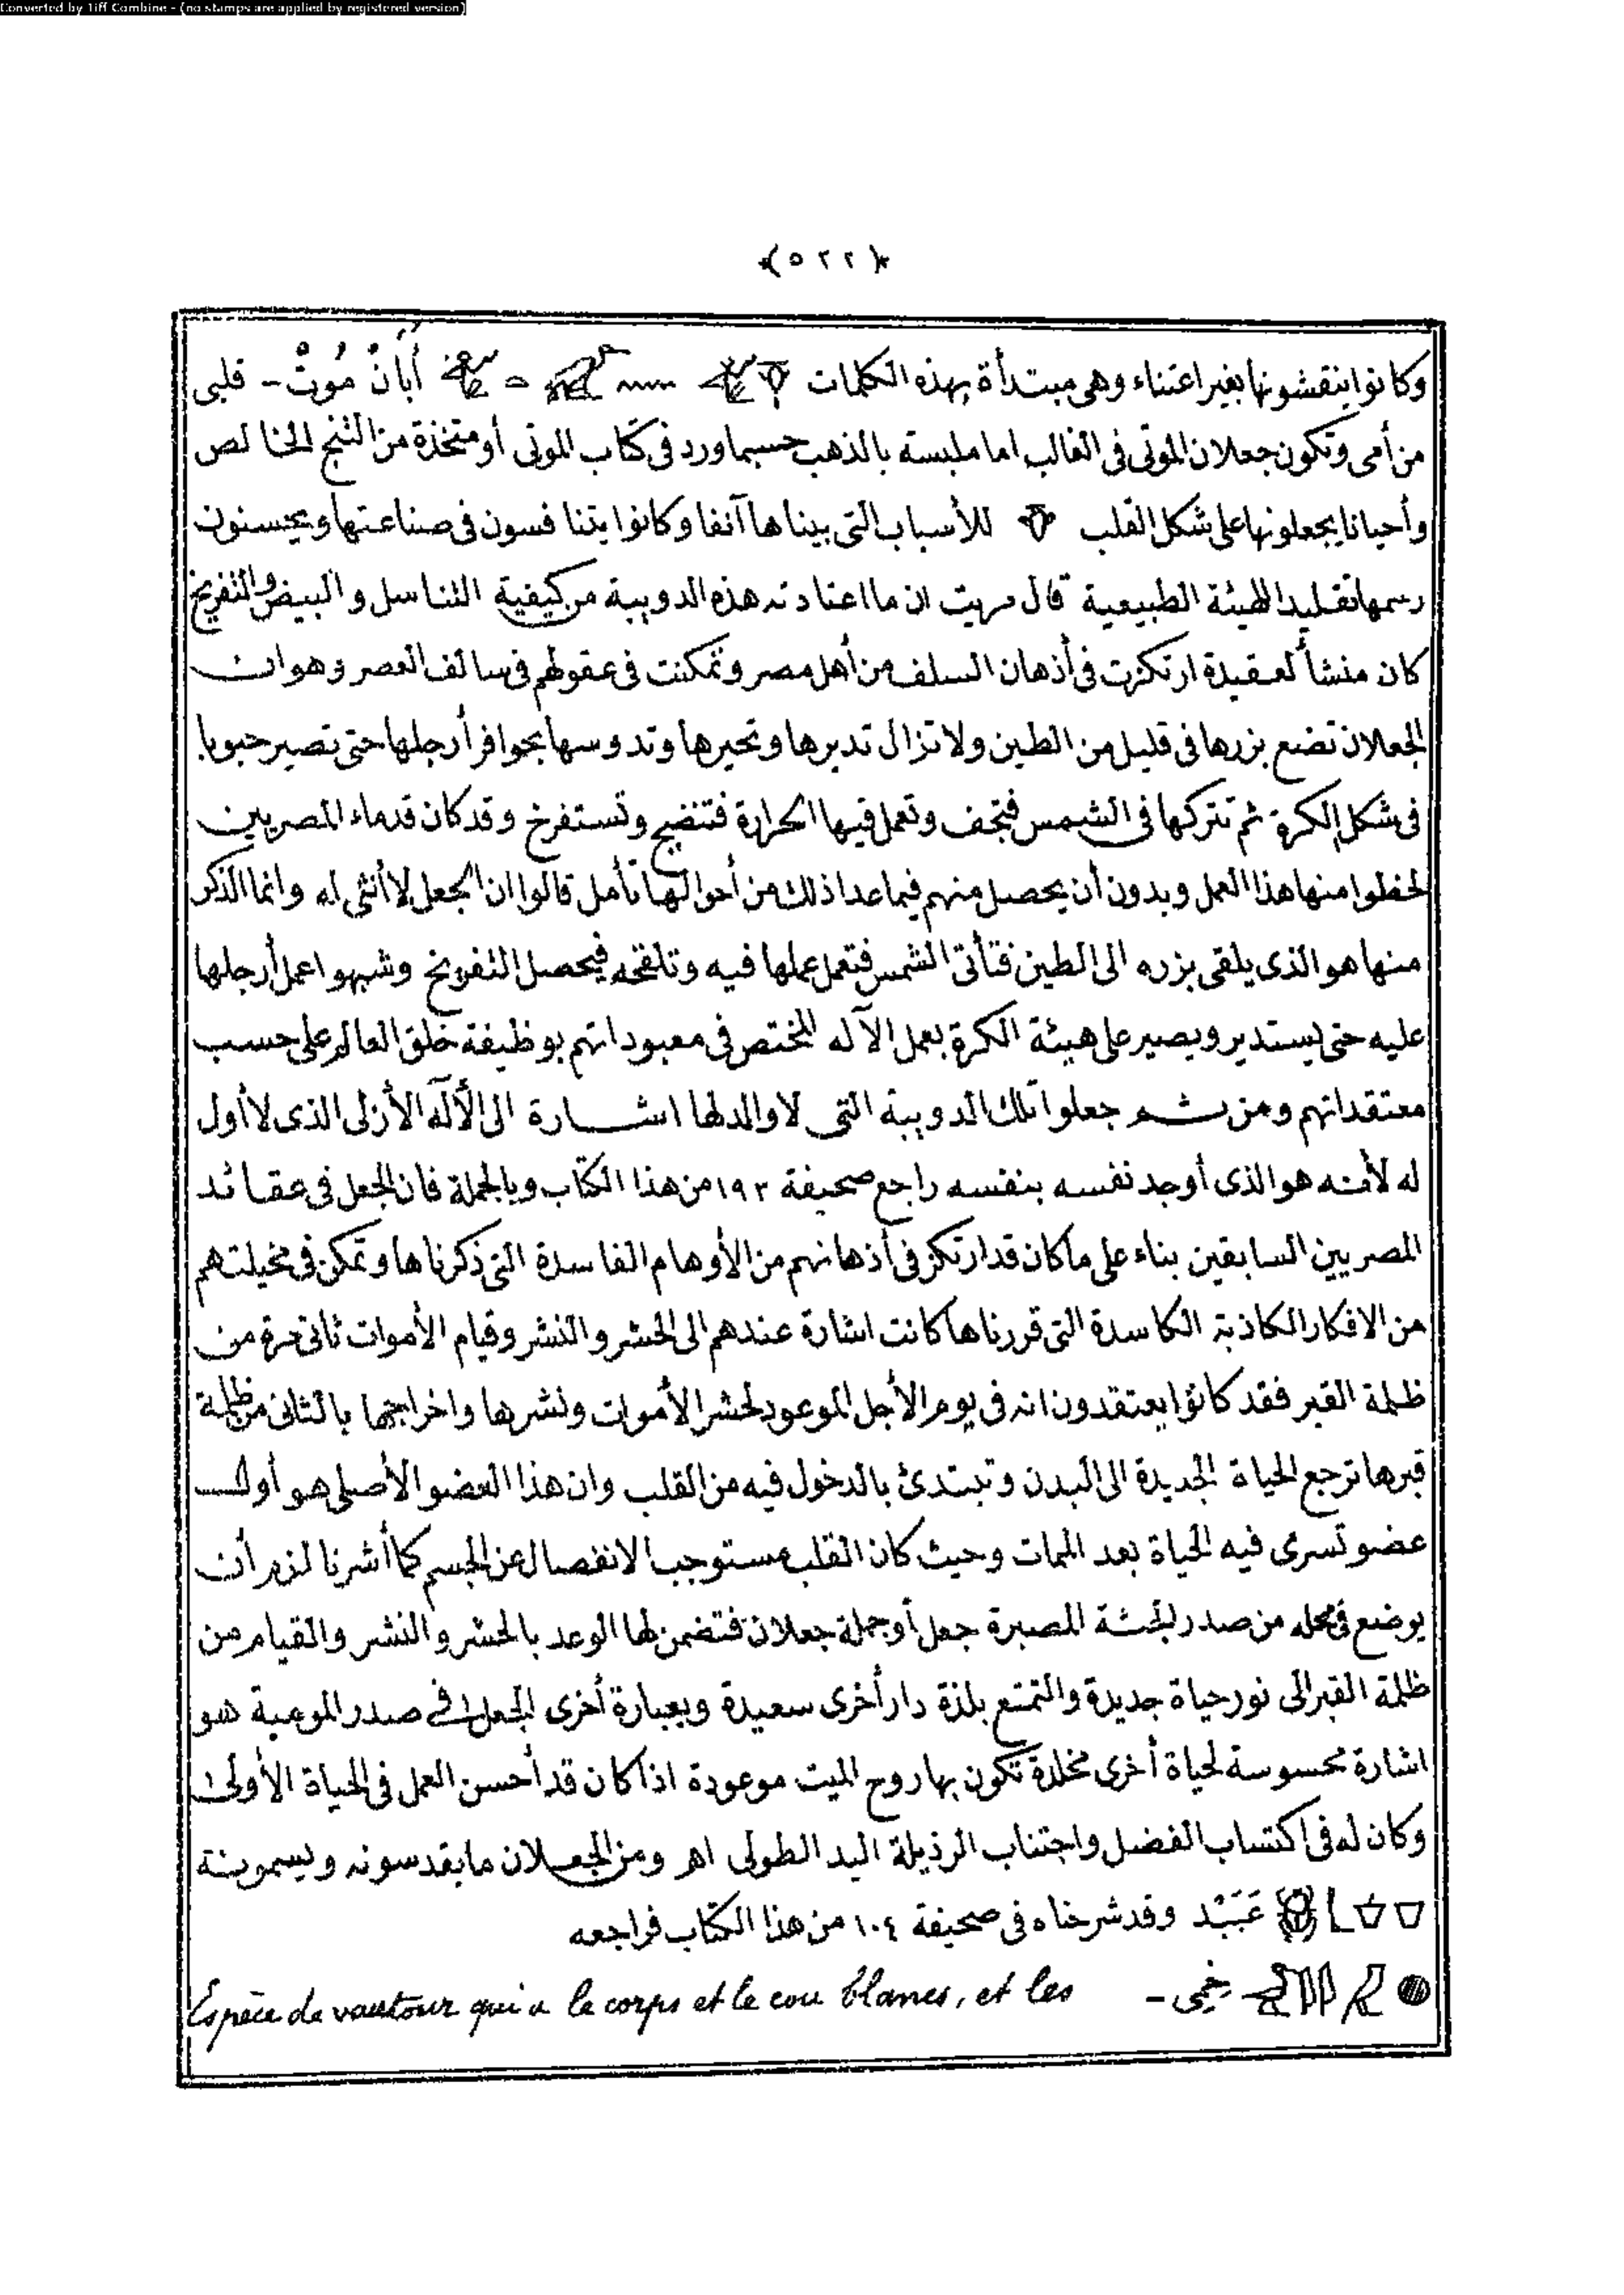 Converted by Tiff Combine - (no stamps are applied by registered version)
﴿٥٢٢﴾
وكانوا ينقشونها بغير اعتناء وهى مبتدأة بهذه الكلمات أَبَانْ مُوتْ - قلبى
من أمى وتكون جعلان الموتى فى الغالب اما ملبسته بالذهب حسبما ورد فى كتاب الموتى أو متخذة من الثنج الخالص
وأحيانا يجعلونها على شكل القلب للأسباب التى بيناها آنفا وكانوا يتنافسون فى صناعتها ويحسنون
رسمها تقليدا للهيئة الطبيعية قال مريت ان ما اعتادته هذه الدويبة من كيفية التناسل والبيض والتفريخ
كان منشأ لعقيدة ارتكزت فى أذهان السلف من أهل مصر وتمكنت فى عقولهم فى سالف العصر وهو ان
الجعلان تضع بزرها فى قليل من الطين ولا تزال تديرها وتحيرها وتدوسها بحوافر أرجلها حتى تصير حبوبا
فى شكل الكرة ثم تتركها فى الشمس فتجف وتعمل فيها الحرارة فتنضج وتستفرخ وقد كان قدماء المصريين
لحظوا منها هذا العمل وبدون أن يحصل منهم فيما عدا ذلك من أحوالها تأمل قالوا ان الجعل لا أنثى له وانما الذكر
منها هو الذى يلقى بزره الى الطين فتأتى الشمس فتعمل عملها فيه وتلقحه فيحصل التفريخ وشبهوا عمل أرجلها
عليه حتى يستدير ويصير على هيئة الكرة بعمل الآله المختص فى معبوداتهم بوظيفة خلق العالم على حسب
معتقداتهم ومن ثم جعلوا تلك الدويبة التى لا والد لها اشارة الى الأله الأزلى الذى لا أول
له لأنه هو الذى أوجد نفسه بنفسه راجع صحيفة ١٩٣ من هذا الكتاب وبالجملة فان الجعل فى عقائد
المصريين السابقين بناء على ما كان قد ارتكز فى أذهانهم من الأوهام الفاسدة التى ذكرناها وتمكن فى مخيلتهم
من الافكار الكاذبة الكاسدة التى قررناها كانت اشارة عندهم الى الحشر والنشر وقيام الأموات ثانى مرة من
ظلمة القبر فقد كانوا يعتقدون انه فى يوم الأجل الموعود لحشر الأموات ونشرها واخراجها بالثانى من ظلمة
قبرها ترجع الحياة الجديدة الى البدن وتبتدئ بالدخول فيه من القلب وان هذا العضو الأصلى هو أول
عضو تسرى فيه الحياة بعد الممات وحيث كان القلب مستوجب الانفصال عن الجسم كما أشرنا لزم أن
يوضع فى محله من صدر الجثة المصبرة جعل أو جملة جعلان فتضمن لها الوعد بالحشر والنشر والقيام من
ظلمة القبر الى نور حياة جديدة والتمتع بلذة دار أخرى سعيدة وبعبارة أخرى الجعل فى صدر المومية هو
اشارة محسوسة لحياة أخرى مخلدة تكون بها روح الميت موعودة اذا كان قد أحسن العمل فى الحياة الأولى
وكان له فى اكتساب الفضل واجتناب الرذيلة اليد الطولى اهـ ومن الجعلان ما يقدسونه ويسمونه
عَبَيْد وقد شرحناه فى صحيفة ١٠٤ من هذا الكتاب فراجعه
خمى - Espèce de vautour qui a le corps et le cou blancs, et les